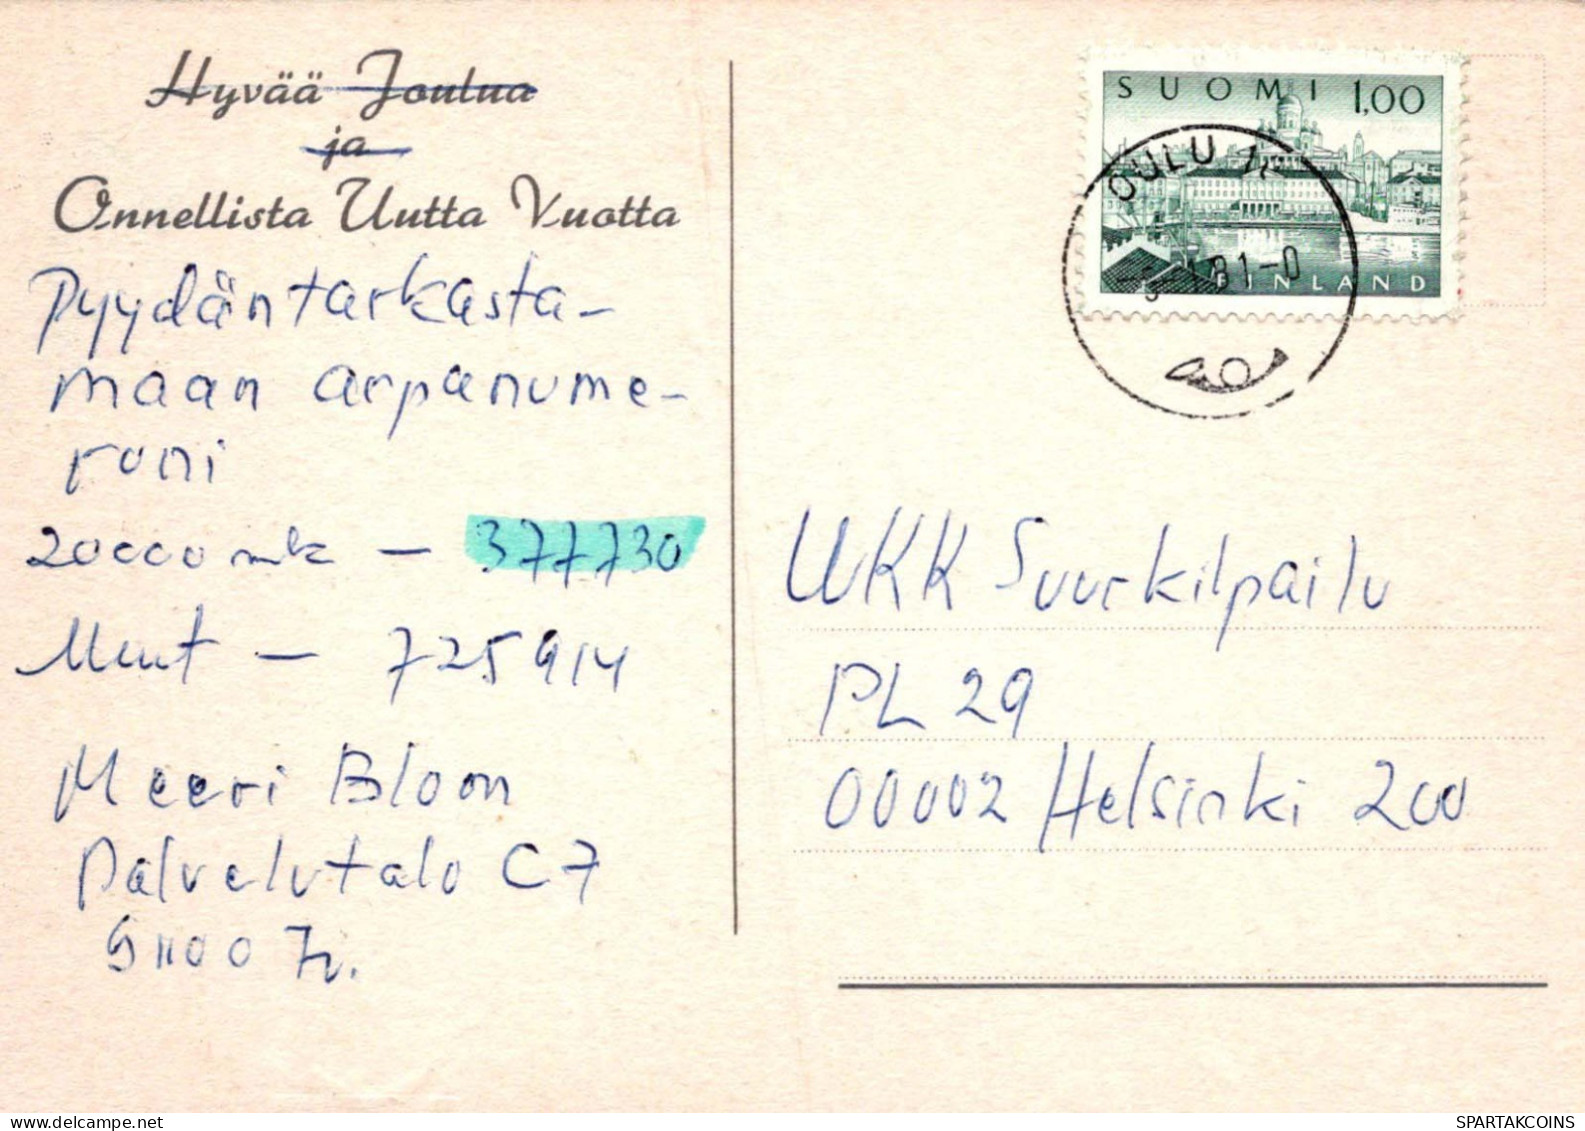 Hyvää Joulua
ja
Onnellista Uutta Vuotta
Pyydän tarkasta-
maan arpanume-
roni
20000 mk – 377730
Muut – 725914
Meeri Bloon
Palvelutalo C7
SUOMI 1,00
OULU
81-0
FINLAND
UKK Suurkilpailu
PL 29
00002 Helsinki 200
SPARTAKCOINS.COM